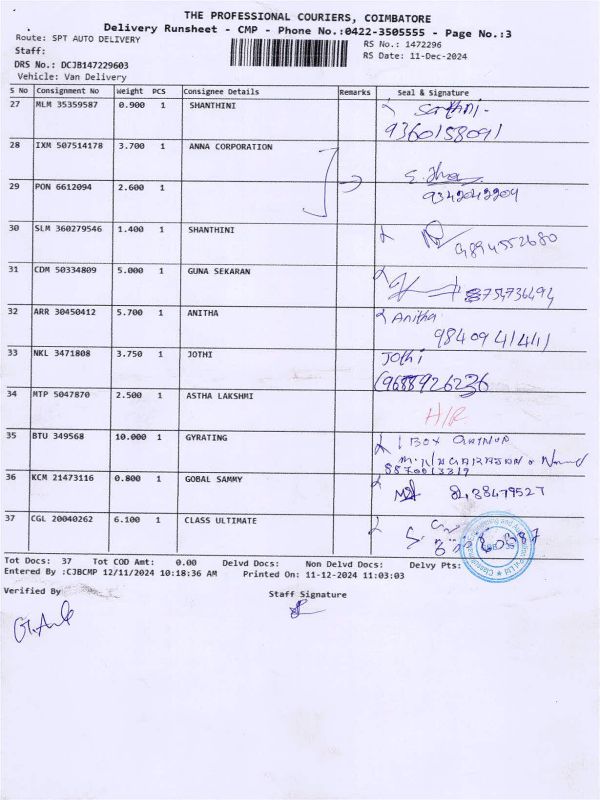 THE PROFESSIONAL COURIERS, COIMBATORE
Delivery Runsheet - CMP - Phone No.:0422-3505555 - Page No.:3
Route: SPT AUTO DELIVERY
RS No.: 1472296
Staff:
RS Date: 11-Dec-2024
DRS No.: DCJB147229603
Vehicle: Van Delivery
S No Consignment No Weight PCS Consignee Details Remarks Seal & Signature
27 MLM 35359587 0.900 1 SHANTHINI
9360158091
28 IXM 507514178 3.700 1 ANNA CORPORATION
29 PON 6612094 2.600 1
9342042209
30 SLM 360279546 1.400 1 SHANTHINI
9894552680
31 CDM 50334809 5.000 1 GUNA SEKARAN
8754736494
32 ARR 30450412 5.700 1 ANITHA Anitha
9840941411
33 NKL 3471808 3.750 1 JOTHI Jothi
9688926236
34 MTP 5047870 2.500 1 ASTHA LAKSHMI
H/R
35 BTU 349568 10.000 1 GYRATING 1 BOX
36 KCM 21473116 0.800 1 GOBAL SAMMY
8438479527
37 CGL 20040262 6.100 1 CLASS ULTIMATE
Tot Docs: 37 Tot COD Amt: 0.00 Delvd Docs: Non Delvd Docs: Delvy Pts:
Entered By :CJBCMP 12/11/2024 10:18:36 AM Printed On: 11-12-2024 11:03:03
Verified By
Staff Signature